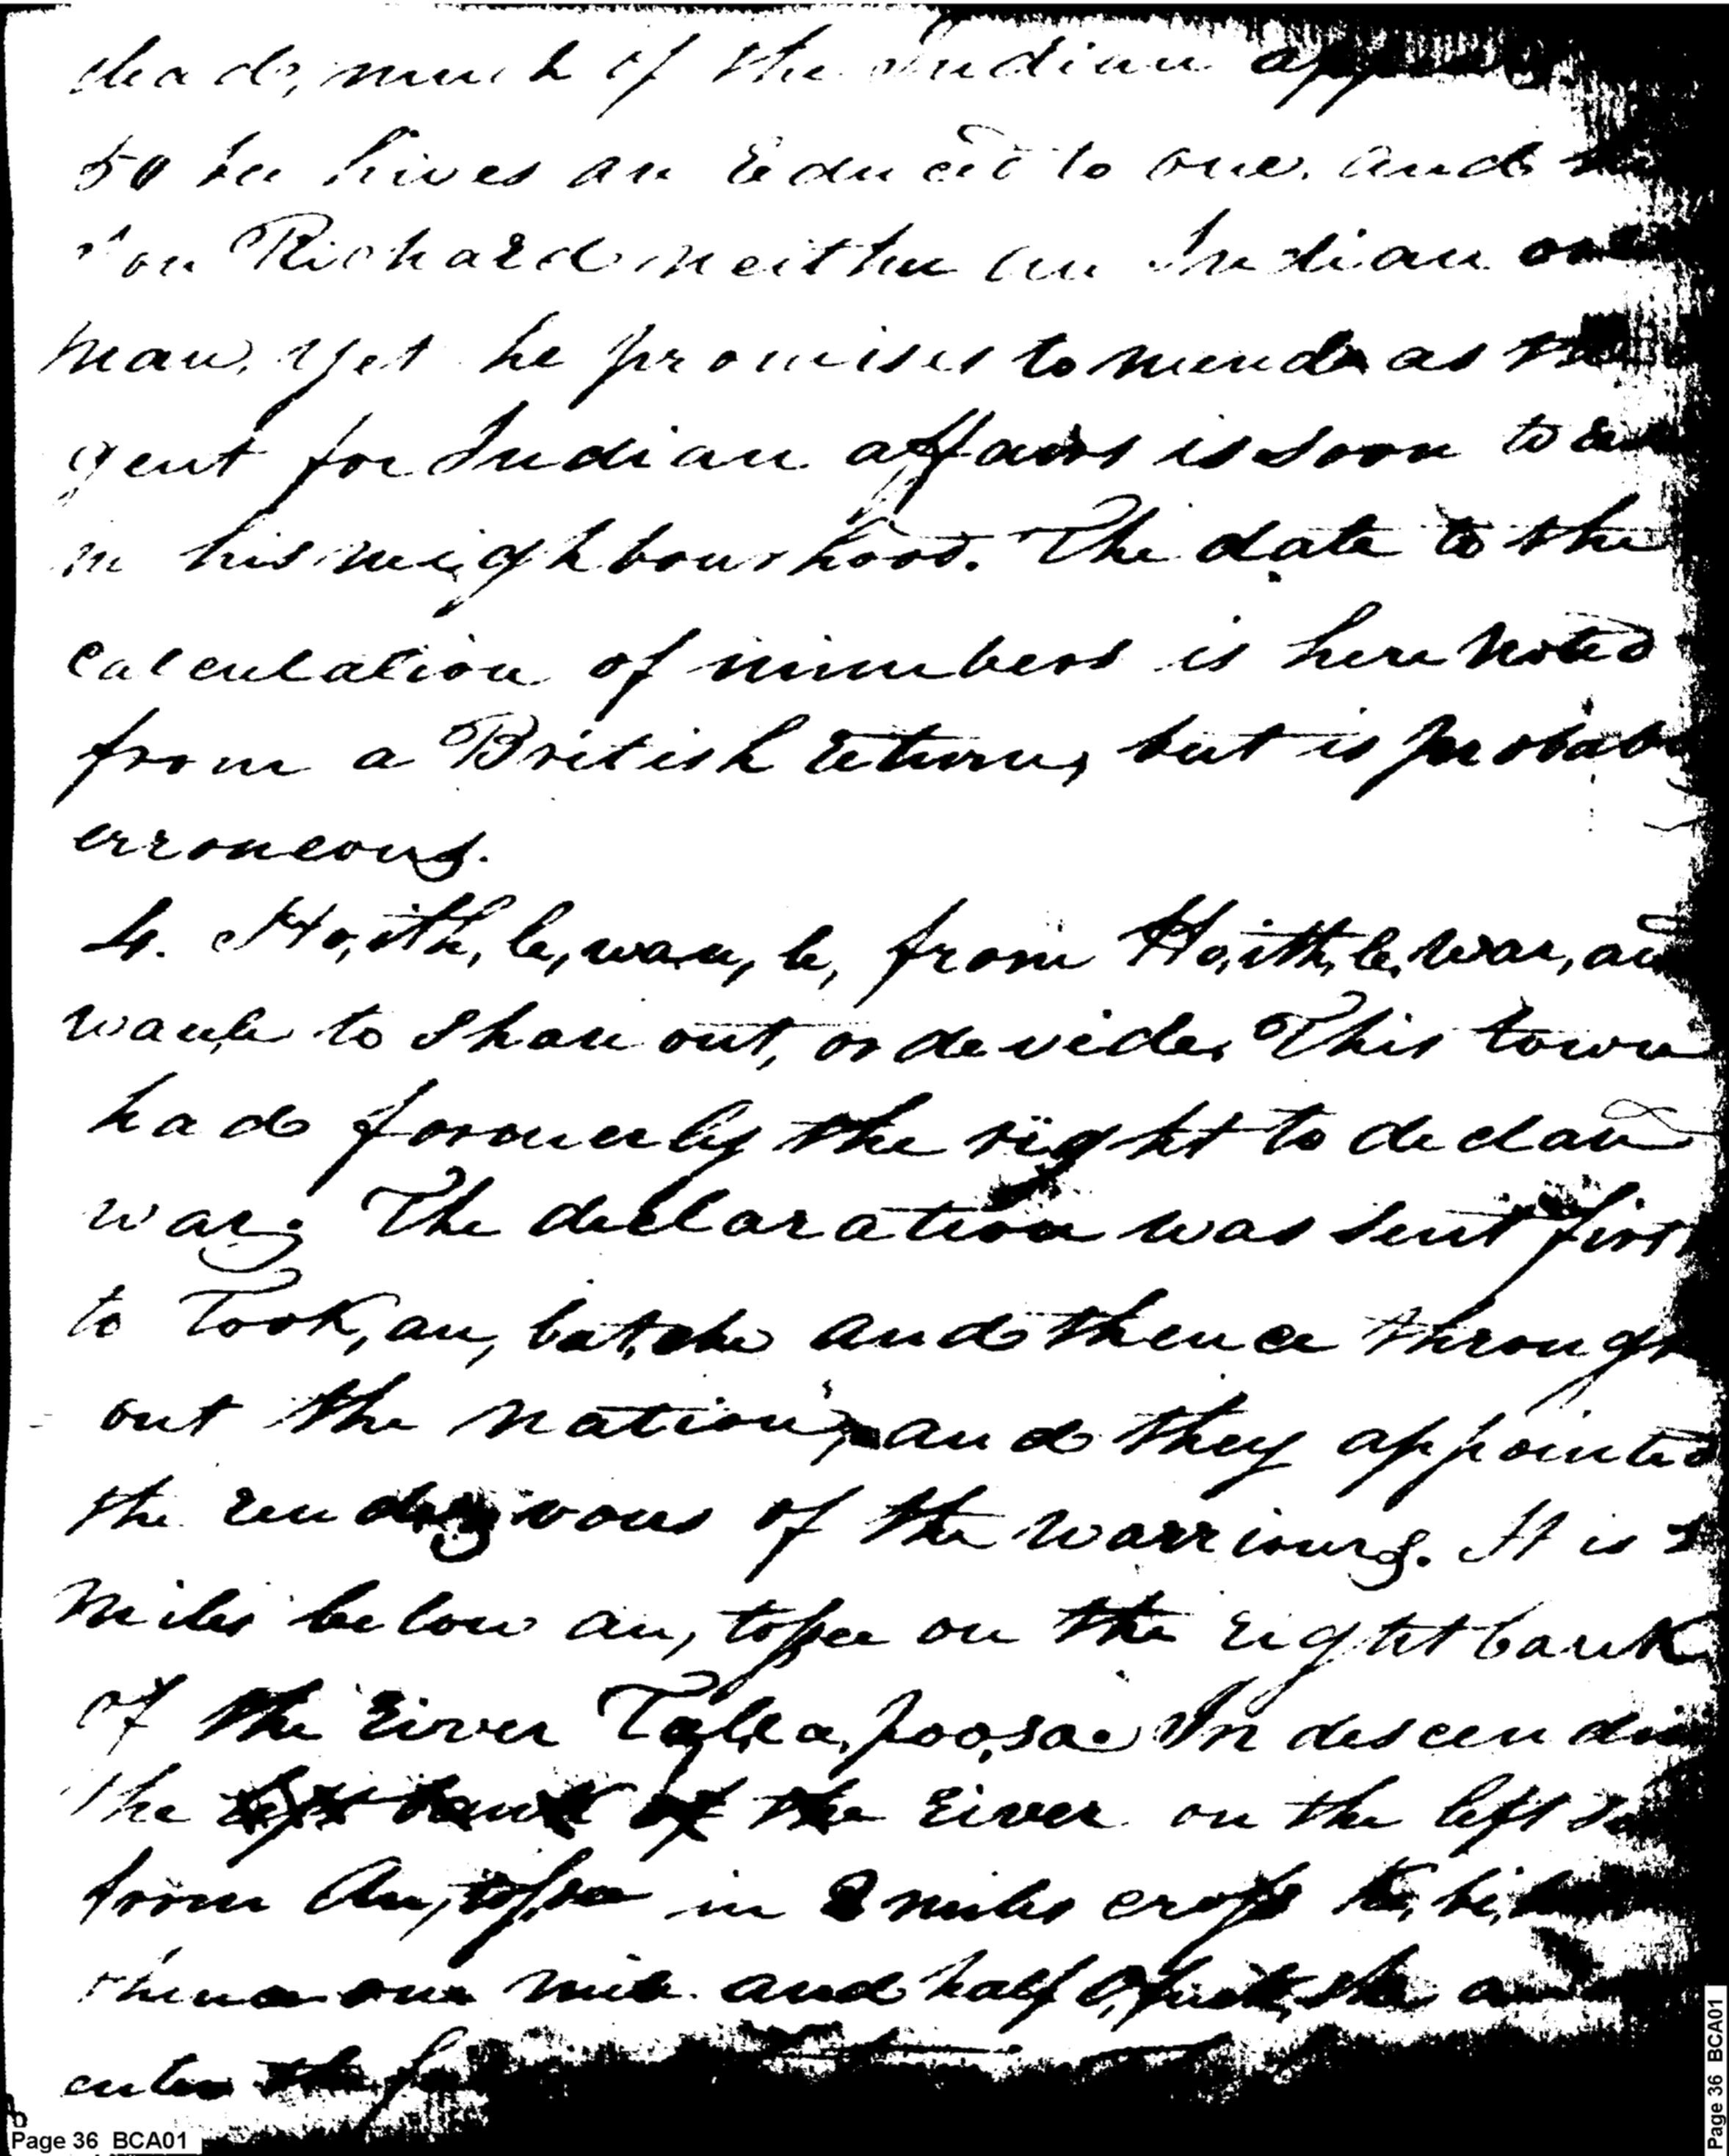 dead, much of the Indian
50 bee hives are reduced to one, and
son Richard neither an Indian or
man, yet he promises to mend as the
gent for Indian affairs is soon to
in his neighbourhood. The date to the
calculation of numbers is here noted
from a British return, but is probab
erroneous.
4. Ho,ith,le,wau,le, from Ho,ith,le, war, and
waule to share out, or devide. This town
had formerly the right to declare
war. The declaration was sent first
to Took,au,bat,che and thence through
out the nation, and they appointed
the rendezvous of the warriours. It is
miles below au,tosse on the right bank
of the river Tal,la,poo,sa. In descendin
the left bank of the river on the left
from Au,tosse in 2 miles cross
thence one mile and half O,fuck,she
enter the
Page 36 BCA01
Page 36 BCA01